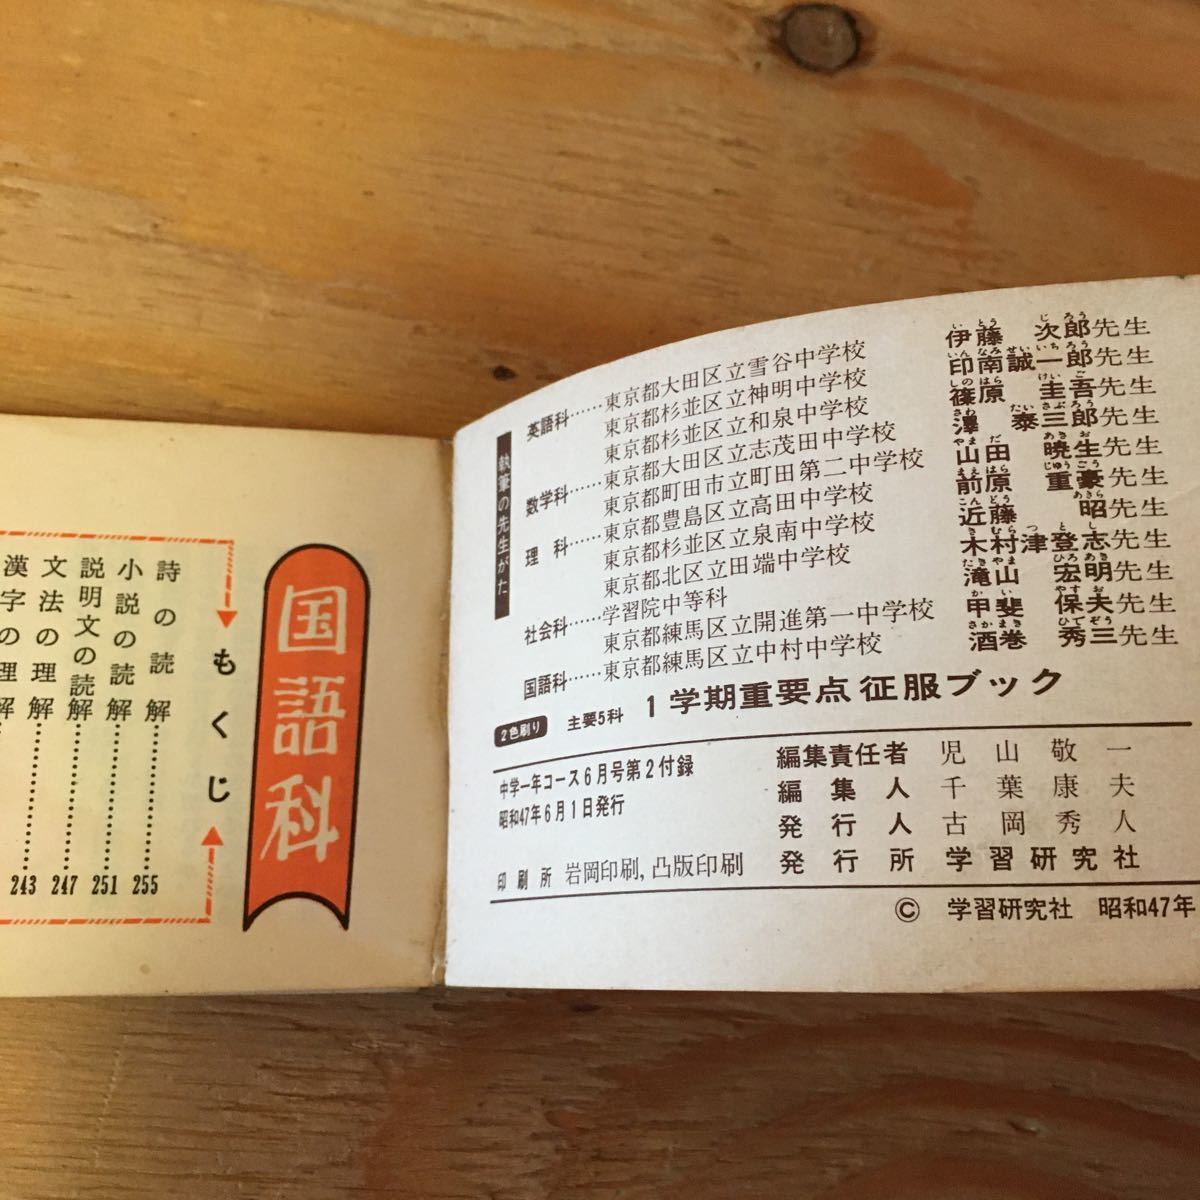 国語科
もくじ
詩の読解……255
小説の読解……251
説明文の読解……247
文法の理解……243
漢字の理解
執筆の先生がた
英語科……東京都大田区立雪谷中学校 伊藤 次郎先生
東京都杉並区立神明中学校 印南誠一郎先生
東京都杉並区立和泉中学校 篠原 圭吾先生
数学科……東京都大田区立志茂田中学校 澤 泰三郎先生
東京都町田市立町田第二中学校 山田 暁生先生
理 科……東京都豊島区立高田中学校 前原 重豪先生
東京都杉並区立泉南中学校 近藤 昭先生
東京都北区立田端中学校 木村津登志先生
社会科……学習院中等科 滝山 宏明先生
東京都練馬区立開進第一中学校 甲斐 保夫先生
国語科……東京都練馬区立中村中学校 酒巻 秀三先生
2色刷り 主要5科 1学期重要点征服ブック
中学一年コース6月号第2付録
昭和47年6月1日発行
印刷所 岩岡印刷,凸版印刷
編集責任者 児山敬一
編集人 千葉康夫
発行人 古岡秀人
発行所 学習研究社
© 学習研究社 昭和47年